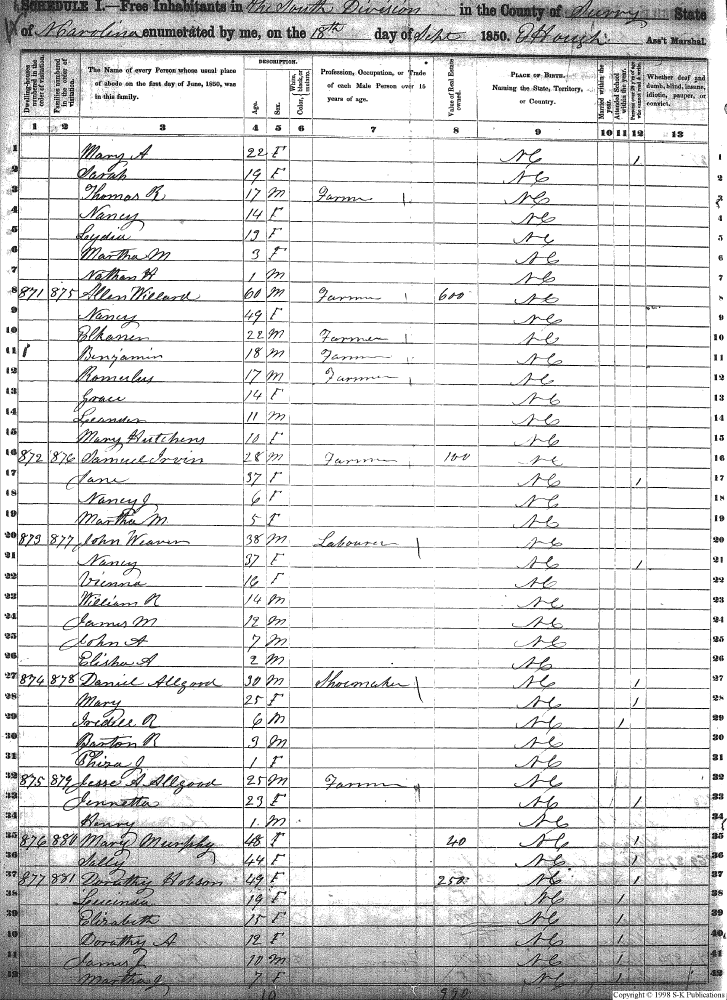 SCHEDULE I.—Free Inhabitants in The South Division in the County of Surry State
of N Carolina enumerated by me, on the 18th day of Sept 1850. Ass't Marshal.
Dwelling-houses numbered in the order of visitation.
Families numbered in the order of visitation.
The Name of every Person whose usual place of abode on the first day of June, 1850, was in this family.
DESCRIPTION.
Age.
Sex.
Color, White, black, or mulatto.
Profession, Occupation, or Trade of each Male Person over 15 years of age.
Value of Real Estate owned.
PLACE OF BIRTH. Naming the State, Territory, or Country.
Married within the year.
Attended School within the year.
Persons over 20 y'rs of age who cannot read & write.
Whether deaf and dumb, blind, insane, idiotic, pauper, or convict.
1 2 3 4 5 6 7 8 9 10 11 12 13
1 Mary A 22 F NC 1 1
2 Sarah 19 F NC 2
3 Thomas R 17 M Farmer NC 3
4 Nancy 14 F NC 4
5 Lydia F NC 5
6 Martha M 3 F NC 6
7 Nathan H 1 M NC 7
8 871 875 Allen Willard 60 M Farmer 600 NC 8
9 Nancy 49 F NC 9
10 Elkanen 22 M Farmer NC 10
11 Benjamin 18 M Farmer NC 11
12 Romulus 17 M Farmer NC 12
13 Grace 14 F NC 13
14 Leander 11 M NC 14
15 Mary Hutchens 10 F NC 15
16 872 876 Samuel Irvin 28 M Farmer 100 NC 16
17 Jane 37 F NC 1 17
18 Nancy J 6 F NC 18
19 Martha M 5 F NC 19
20 873 877 John Weaver 38 M Labourer NC 20
21 Nancy 37 F NC 1 21
22 Vienna 16 F NC 22
23 William R 14 M NC 23
24 James M 12 M NC 24
25 John A 7 M NC 25
26 Elisha A 2 M NC 26
27 874 878 Daniel Allgood 30 M Shoemaker NC 1 27
28 Mary 25 F NC 1 28
29 Iredell R 6 M NC 1 29
30 Barton R 3 M NC 30
31 Eliza J 1 F NC 31
32 875 879 Jesse A Allgood 25 M Farmer NC 32
33 Jennetta 23 F NC 1 33
34 Henry 1 M NC 34
35 876 880 Mary Murphy 48 F 40 NC 1 35
36 Sally 44 F NC 1 36
37 877 881 Dorothy Hobson 49 F 250 NC 1 37
38 Leucinda 19 F NC 1 38
39 Elizabeth 15 F NC 1 39
40 Dorothy A 12 F NC 1 40
41 James J 10 M NC 1 41
42 Martha J 7 F NC 1 42
990
Copyright © 1998 S-K Publications